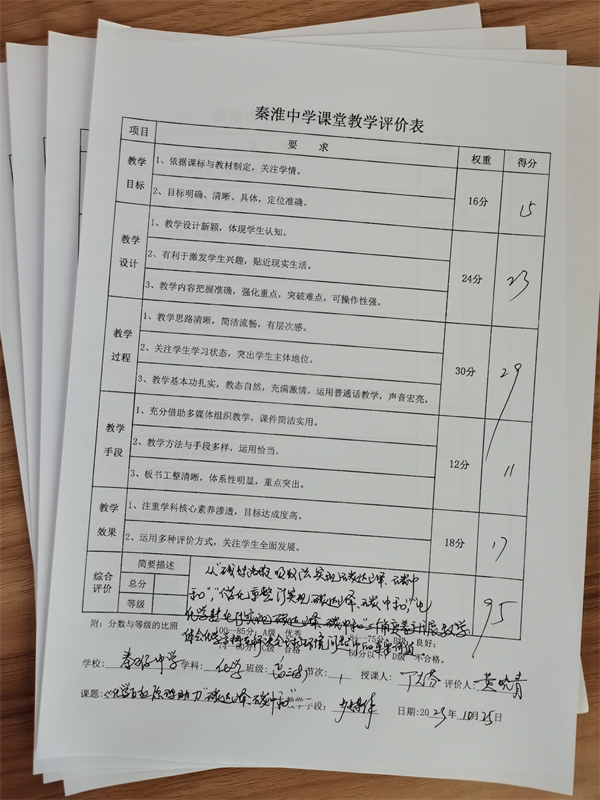 秦淮中学课堂教学评价表
项目 要 求 权重 得分
教学目标 1、依据课标与教材制定，关注学情。 16分 15
2、目标明确、清晰、具体，定位准确。
教学设计 1、教学设计新颖，体现学生认知。 24分 23
2、有利于激发学生兴趣，贴近现实生活。
3、教学内容把握准确，强化重点，突破难点，可操作性强。
教学过程 1、教学思路清晰，简洁流畅，有层次感。 30分 29
2、关注学生学习状态，突出学生主体地位。
3、教学基本功扎实，教态自然，充满激情，运用普通话教学，声音宏亮。
教学手段 1、充分借助多媒体组织教学，课件简洁实用。 12分 11
2、教学方法与手段多样，运用恰当。
3、板书工整清晰，体系性明显，重点突出。
教学效果 1、注重学科核心素养渗透，目标达成度高。 18分 17
2、运用多种评价方式，关注学生全面发展。
综合评价 简要描述 95
总分
等级
实现碳达峰、碳中
和
附：分数与等级的比照 100-85分，A级 优秀 良好；
合格 60分以下：D级 不合格。
学校： 秦淮中学 学科： 化学 班级： 节次： 1 授课人： 评价人： 黄晓青
课题： 助力"碳达峰、碳中和" 日期：2023年10月25日